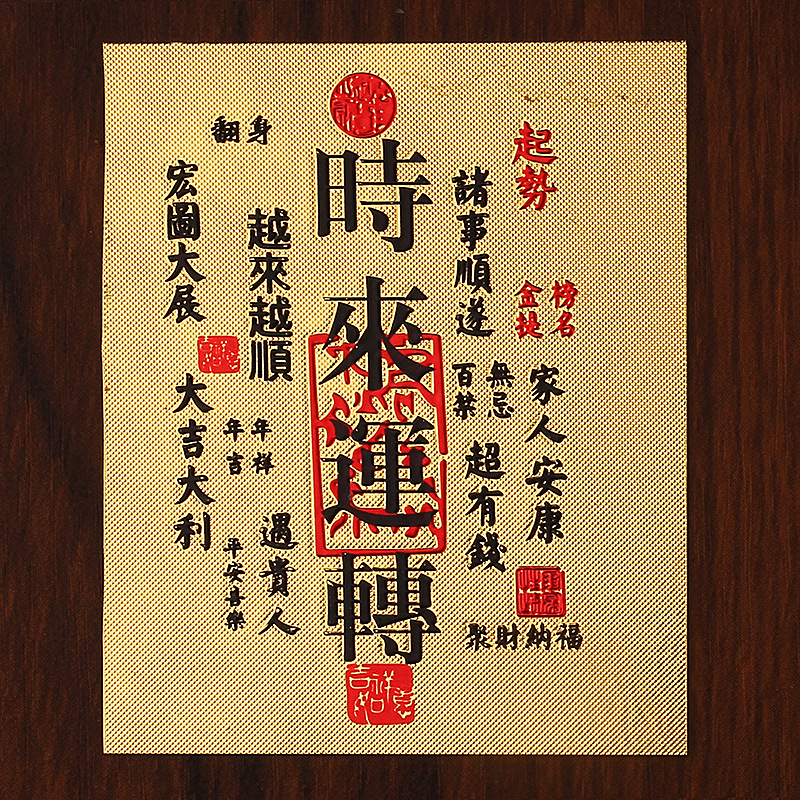 起勢
金榜
提名
家人安康
聚財納福
諸事順遂
百無
禁忌
超有錢
時來運轉
吉祥如意
翻身
越來越順
年年
吉祥
遇貴人
平安喜樂
宏圖大展
大吉大利